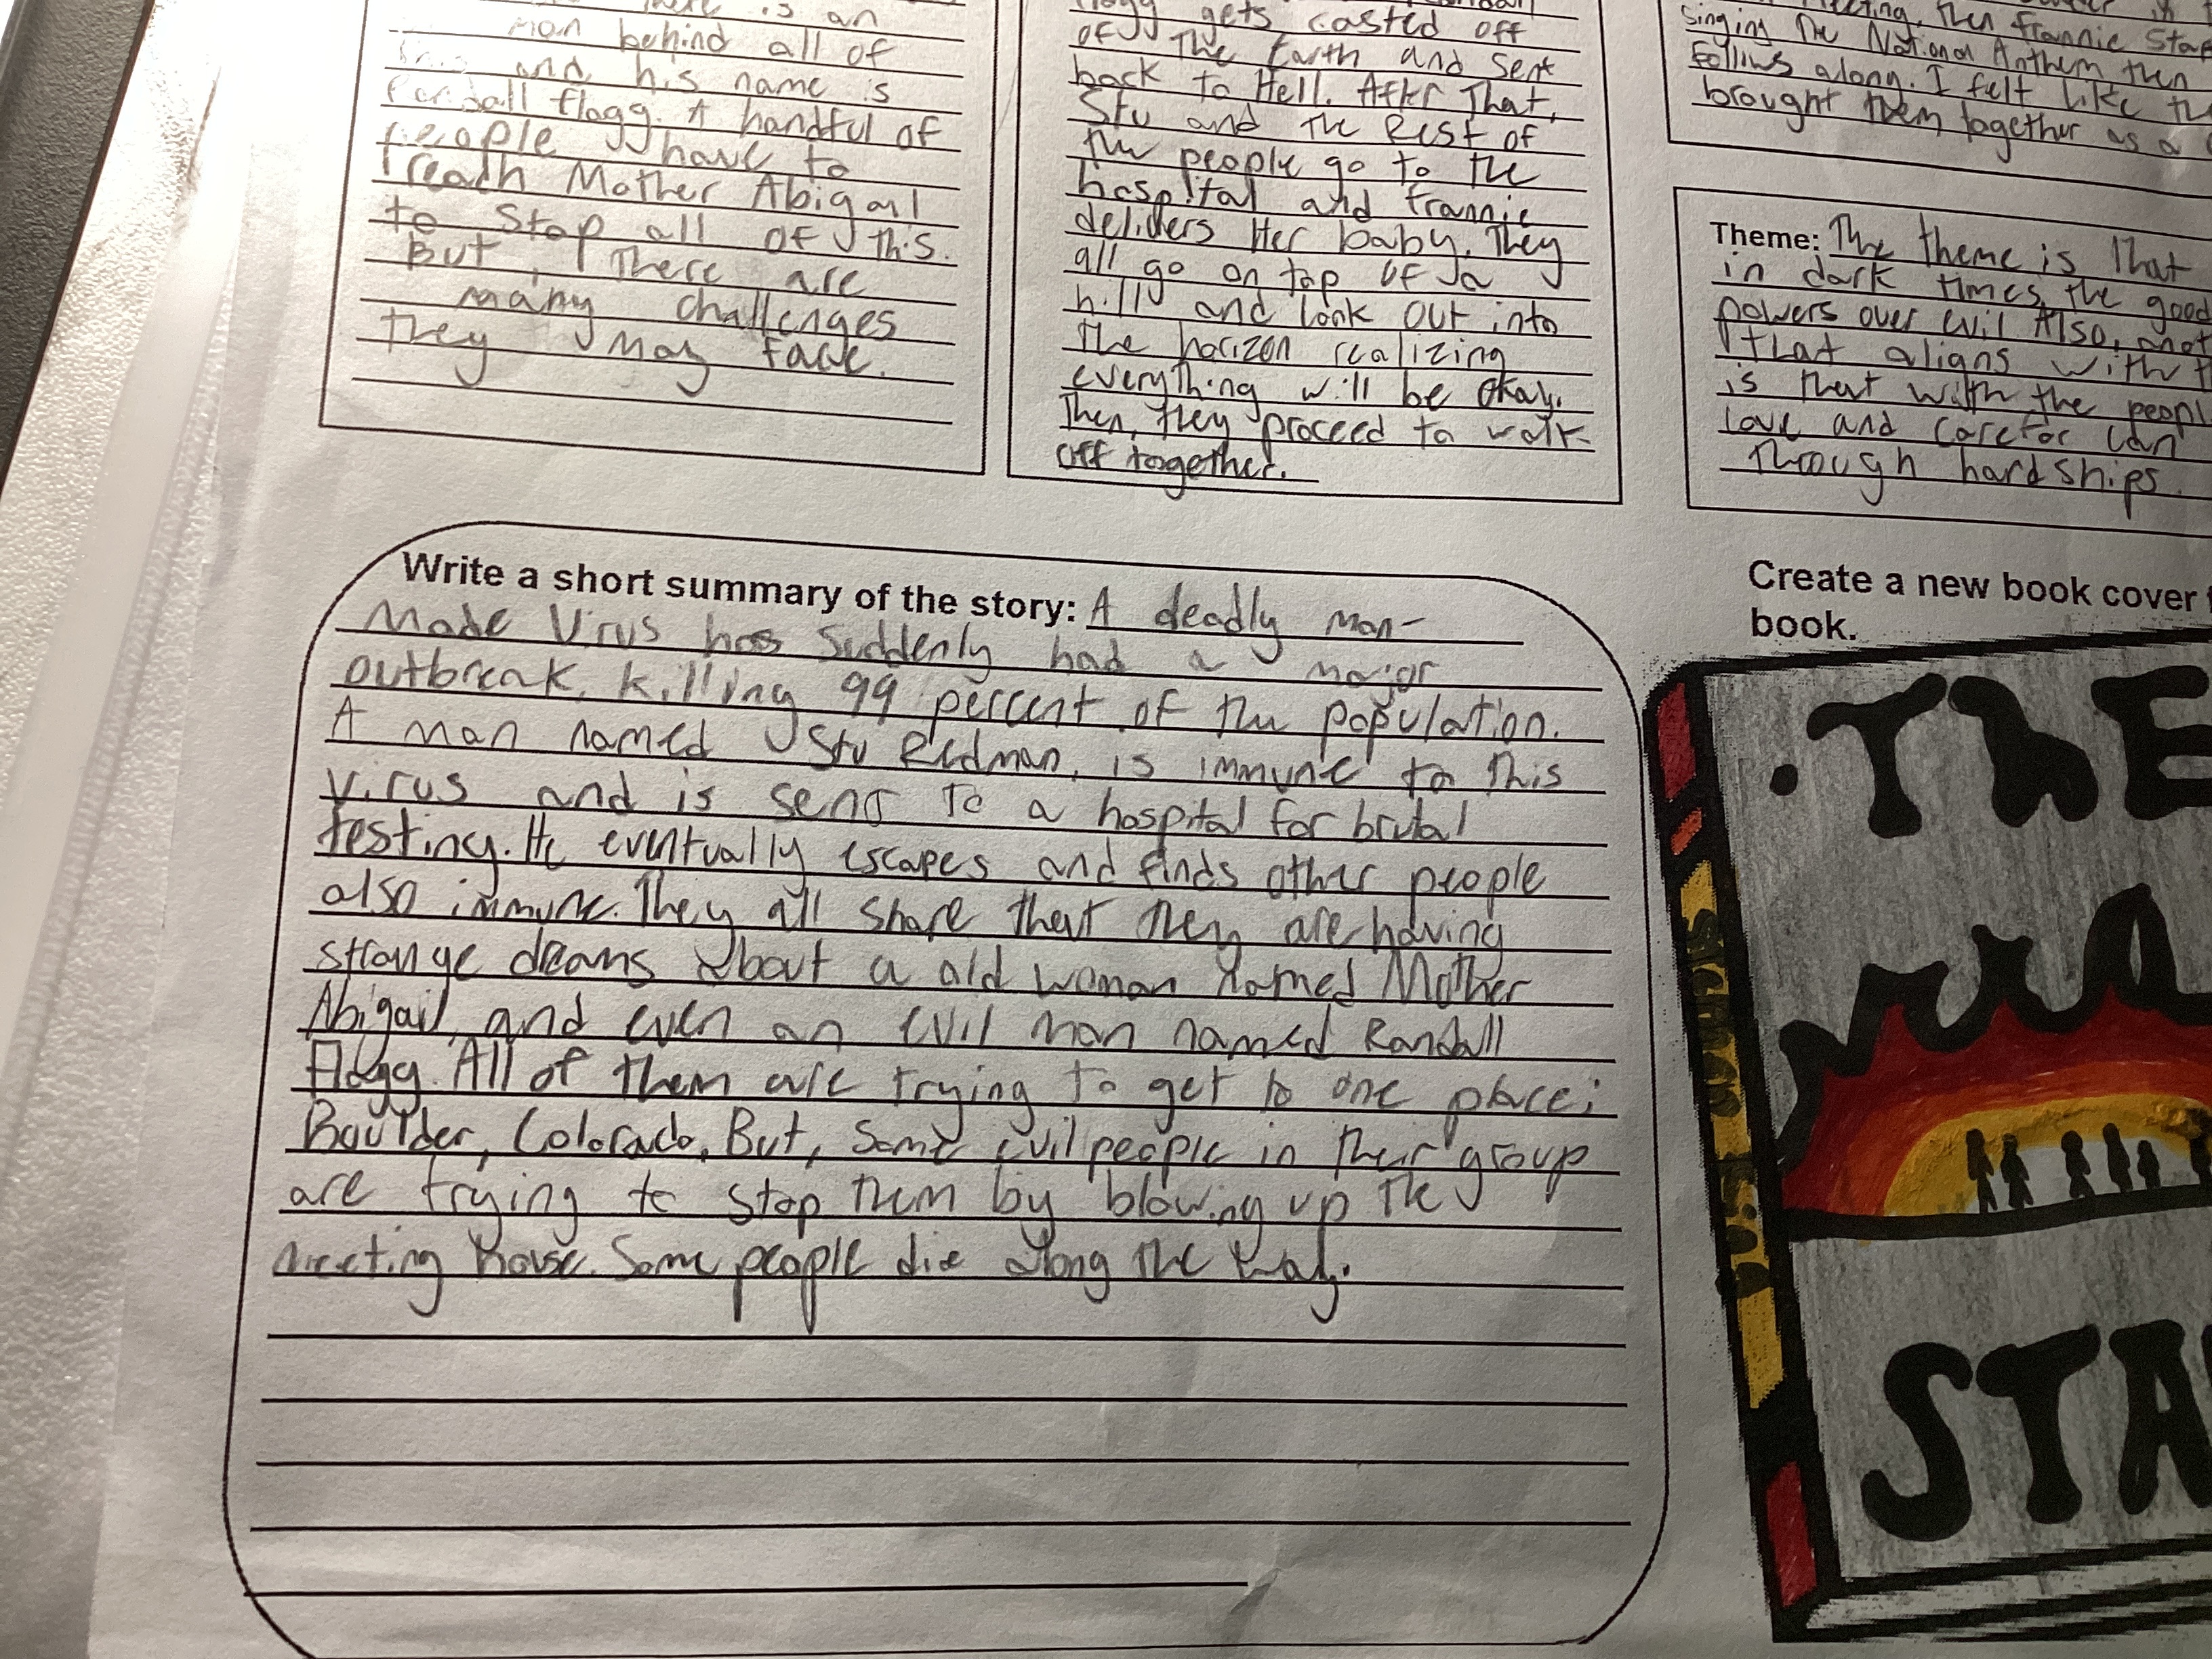 there is an
man behind all of
this and his name is
Randall flagg. A handful of
people have to
reach Mother Abigail
to stop all of this.
But, There are
many challenges
they may face.
flagg gets casted off
of The Earth and sent
back to Hell. After That,
Stu and The Rest of
the people go to the
hospital and Frannie
delivers Her baby. They
all go on top of a
hill and look out into
the horizon realizing
everything will be okay.
Then, they proceed to walk
off together.
meeting, then Frannie
singing The National Anthem then
follows along. I felt like
brought them together as a
Theme: The theme is That
in dark times, the good
powers over evil Also,
That aligns with
is that with the
love and care for can
Through hardships.
Write a short summary of the story: A deadly man-
Made Virus has Suddenly had a major
outbreak, killing 99 percent of the population.
A man named Stu Redman, is immune to this
virus and is sent To a hospital for brutal
testing. He eventually escapes and finds other people
also immune. They all share that they are having
strange dreams about a old woman named Mother
Abigail, and even an evil man named Randall
Flagg. All of them are trying to get to one place;
Boulder, Colorado. But, Some evil people in their group
are trying to stop them by blowing up the
meeting house. Some people die along the way.
Create a new book cover
book.
THE
STA